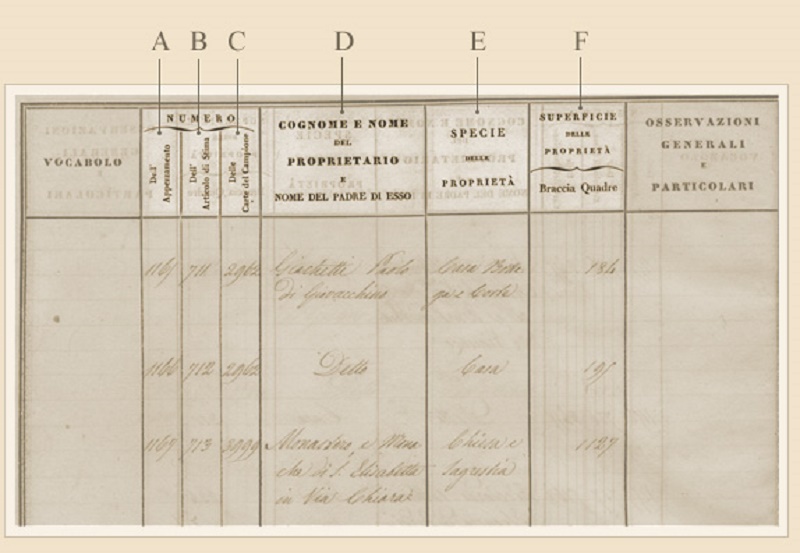 A B C D E F
NUMERO
VOCABOLO
Dell' Appezzamento
Dell' Articolo di Stima
Delle Carte del Campione
COGNOME E NOME
DEL
PROPRIETARIO
E
NOME DEL PADRE DI ESSO
SPECIE
DELLE
PROPRIETÀ
SUPERFICIE
DELLE
PROPRIETÀ
Braccia Quadre
OSSERVAZIONI
GENERALI
E
PARTICOLARI
1165 711 2962 Giachetti Paolo Casa Botte
di Giovacchino ga e Corte
1166 712 2962 Detto Casa
1167 713 3999 Monastero, e Mona
che di S. Elisabetta
in Via Chiara
Chiesa e
Sagrestia
1127